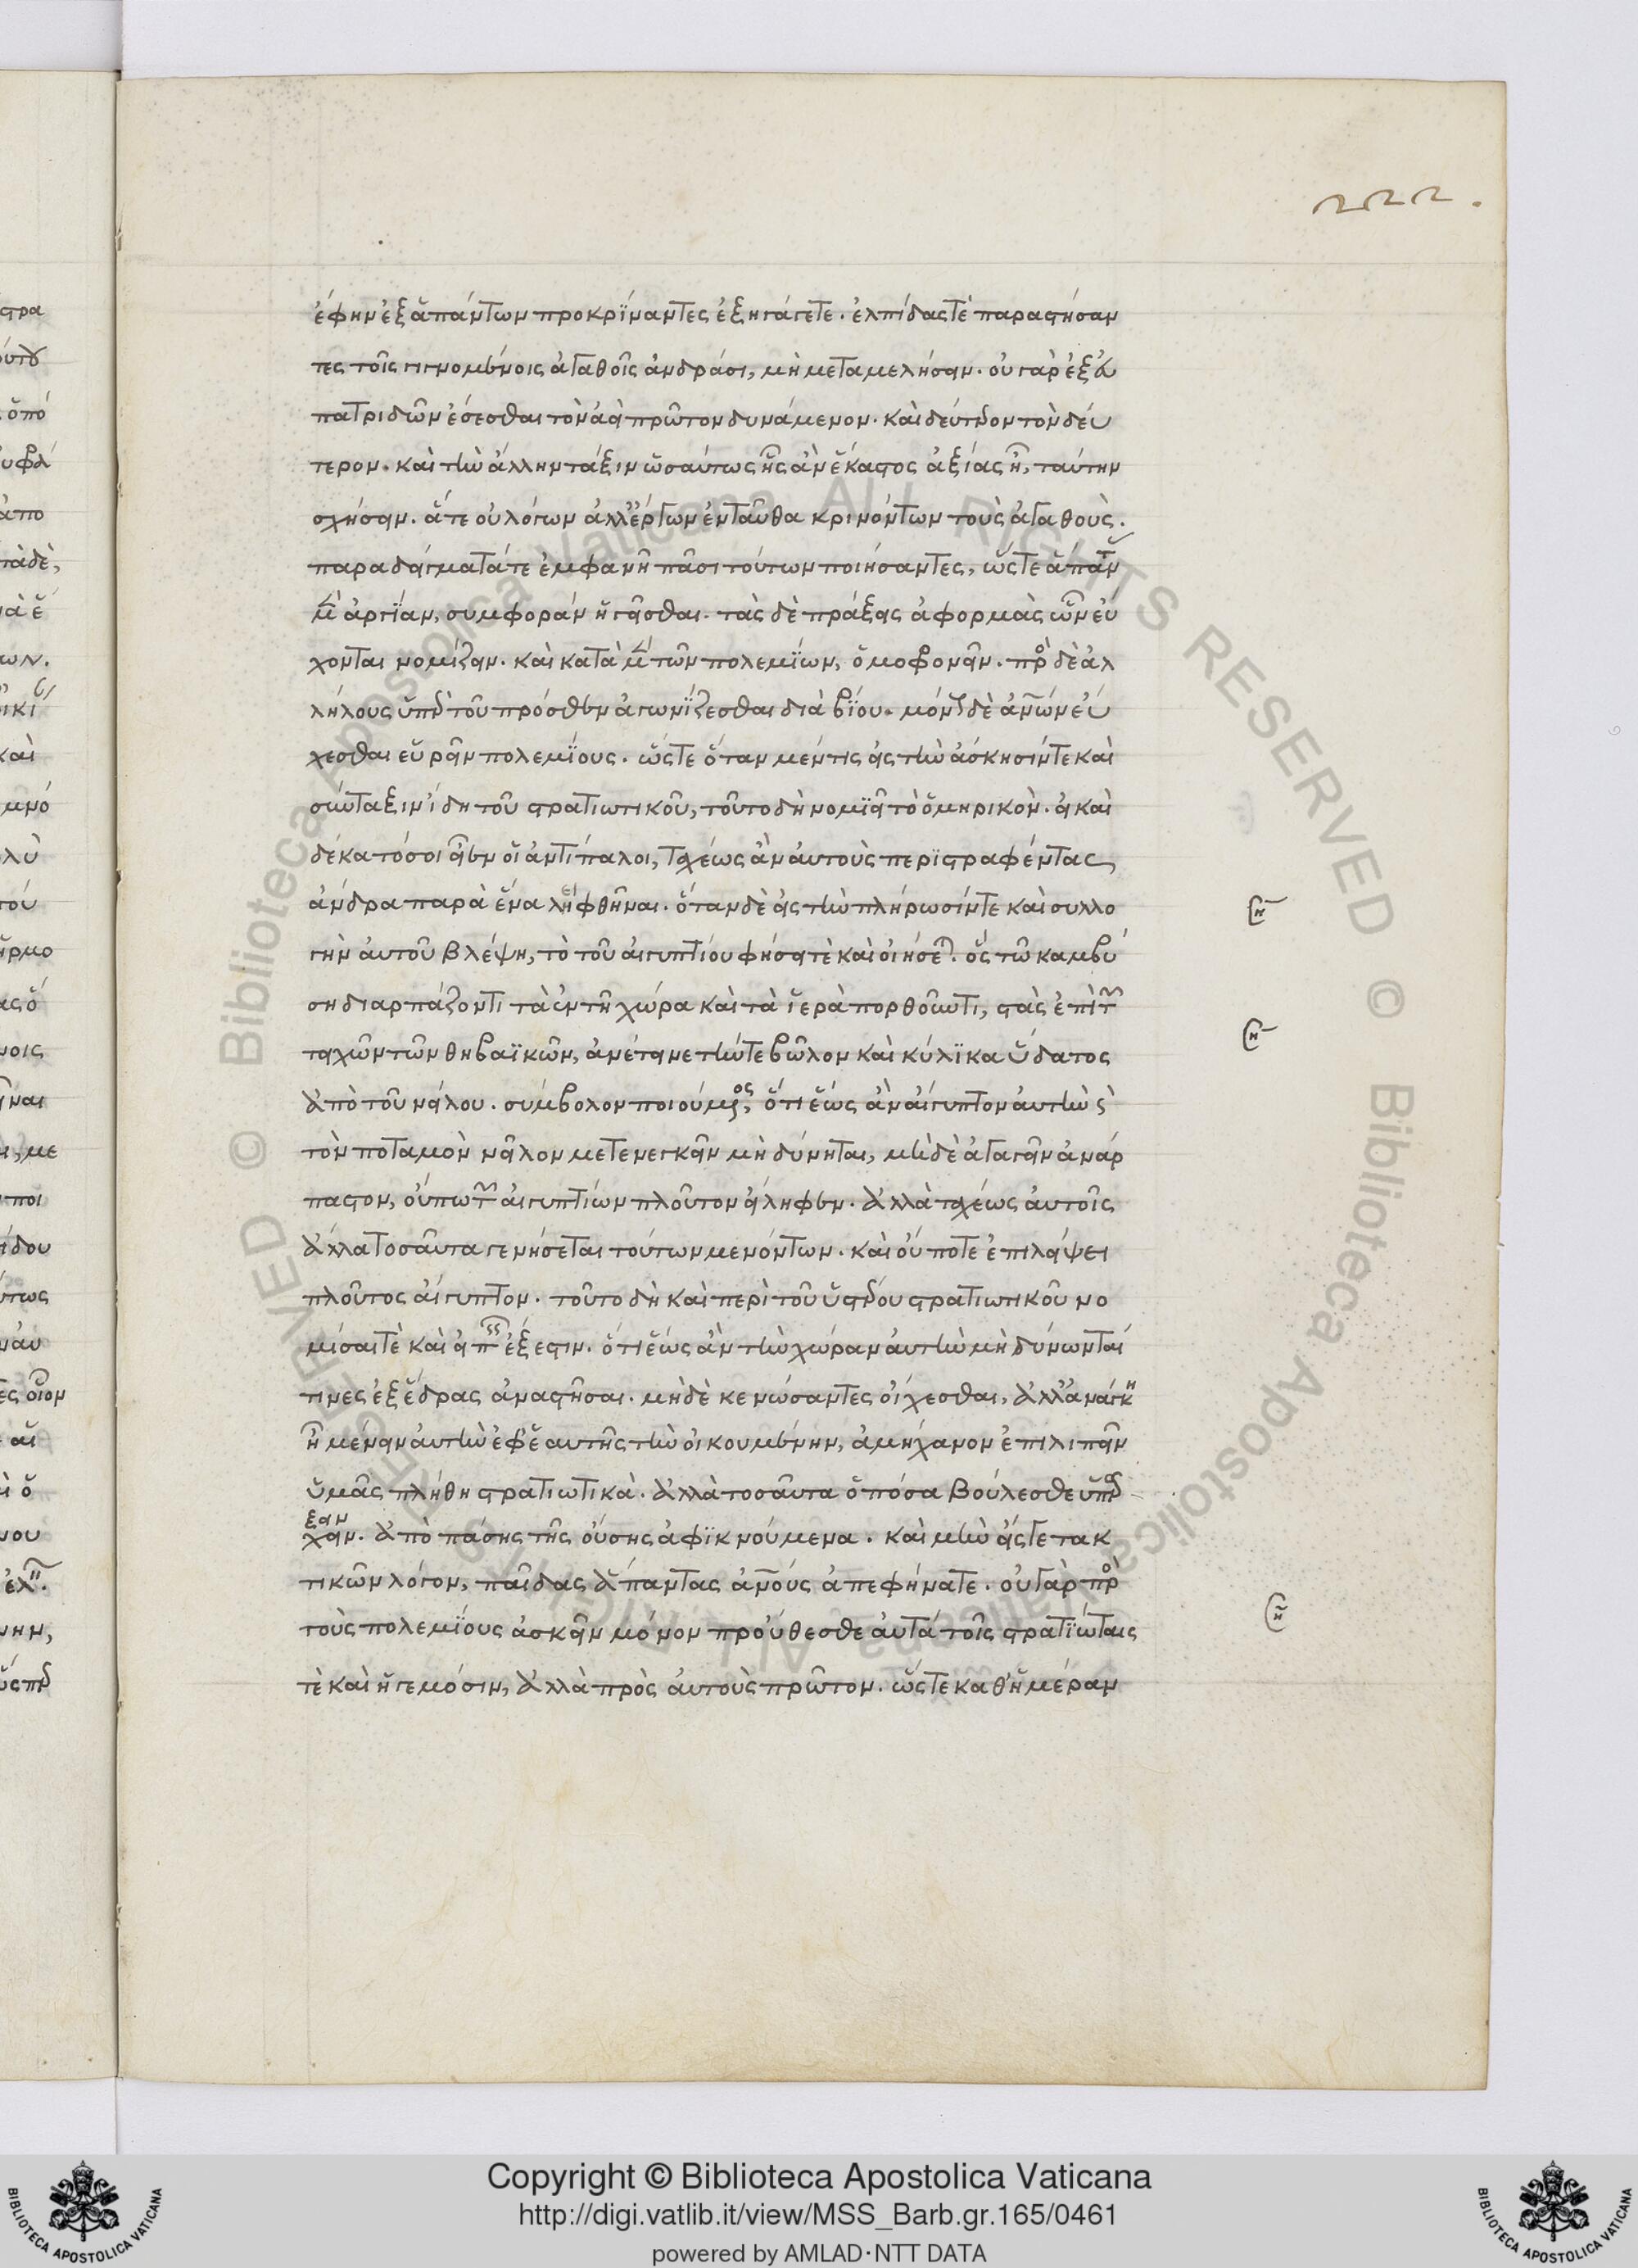 222.
ἔφην ἐξ ἁπάντων προκρίναντες ἐξηγάγετε. ἐλπίδας τὲ παραστήσαν
τες τοῖς γιγνομένοις ἀγαθοῖς ἀνδράσι, μὴ μεταμελήσειν. οὐ γὰρ ἐξ εὐ
πατριδῶν ἔσεσθαι τὸν ἀεὶ πρῶτον δυνάμενον. καὶ δεύτερον τὸν δεύ
τερον. καὶ τὴν ἄλλην τάξιν ὡσαύτως ἧς ἂν ἕκαστος ἀξίας ᾖ, ταύτην
σχήσειν. ἅτε οὐ λόγων ἀλλ' ἔργων ἐνταῦθα κρινόντων τοὺς ἀγαθούς.
παραδείγματά τε ἐμφανῆ πᾶσι τούτων ποιήσαντες, ὥστε ἅπαν
μὲν ἀργίαν, συμφορὰν ἡγεῖσθαι. τὰς δὲ πράξεις ἀφορμὰς ὧν εὔ
χονται νομίζειν. καὶ κατὰ μὲν τῶν πολεμίων, ὁμοφρονεῖν. πρὸς δὲ ἀλ
λήλους ὑπὲρ τοῦ πρόσθεν ἀγωνίζεσθαι διὰ βίου. μόνους δὲ ἀνθρώπων εὔ
χεσθαι εὑρεῖν πολεμίους. ὥστε ὅταν μέν τις εἰς τὴν ἄσκησίν τε καὶ
σύνταξιν ἴδῃ τοῦ στρατιωτικοῦ, τοῦτο δὴ νομιεῖ τὸ ὁμηρικὸν. εἰ καὶ
δέκα τόσοι εἶεν οἱ ἀντίπαλοι, ταχέως ἂν αὐτοὺς περιτραφέντας,
ἄνδρα παρὰ ἕνα ληφθῆναι. ὅταν δὲ εἰς τὴν πλήρωσίν τε καὶ συλλο
γὴν αὐτοῦ βλέψῃ, τὸ τοῦ αἰγυπτίου φήσει τὲ καὶ οἰήσεται. ὃς τῶ καμβύ
ση διαρπάζοντι τὰ ἐν τῇ χώρα καὶ τὰ ἱερὰ πορθοῦντι, στὰς ἐπὶ τῶν
τειχῶν τῶν θηβαϊκῶν, ἀνέτεινε τήν τε βῶλον καὶ κύλικα ὕδατος
ἀπὸ τοῦ νείλου. σύμβολον ποιούμενος, ὅτι ἕως ἂν αἴγυπτον αὐτὴν καὶ
τὸν ποταμὸν νεῖλον μετενεγκεῖν μὴ δύνηται, μηδὲ ἀγαγεῖν ἀνάρ
παστον, οὔπω τῶν αἰγυπτίων πλοῦτον εἴληφεν. ἀλλὰ ταχέως αὐτοῖς
ἄλλα τοσαῦτα γενήσεται τούτων μενόντων. καὶ οὔποτε ἐπιλείψει
πλοῦτος αἴγυπτον. τοῦτο δὴ καὶ περὶ τοῦ ὑμετέρου στρατιωτικοῦ νο
μίσαι τὲ καὶ εἰπεῖν ἔξεστιν. ὅτι ἕως ἂν τὴν χώραν αὐτὴν μὴ δύνωνταί
τινες ἐξ ἕδρας ἀναστῆσαι. μηδὲ κενώσαντες οἴχεσθαι, ἀλλ' ἀνάγκη
ᾖ μένειν αὐτὴν ἐφ' ἑαυτῆς τὴν οἰκουμένην, ἀμήχανον ἐπιλιπεῖν
ὑμᾶς πλήθη στρατιωτικὰ. ἀλλὰ τοσαῦτα ὁπόσα βούλεσθε ὑπάρ
ξειν
χειν. ἀπὸ πάσης τῆς οὔσης ἀφϊκνούμενα. καὶ μὴν εἴς γε τακ
τικῶν λόγον, παῖδας ἅπαντας ἀνθρώπους ἀπεφήνατε. οὐ γὰρ πρὸς
τοὺς πολεμίους ἀσκεῖν μόνον προὔθεσθε αὐτά τοῖς στρατιώταις
τὲ καὶ ἡγεμόσιν, ἀλλὰ πρὸς αὐτοὺς πρῶτον. ὥστε καθ' ἡμέραν
Copyright © Biblioteca Apostolica Vaticana
http://digi.vatlib.it/view/MSS_Barb.gr.165/0461
powered by AMLAD·NTT DATA
BIBLIOTECA APOSTOLICA VATICANA
BIBLIOTECA APOSTOLICA VATICANA